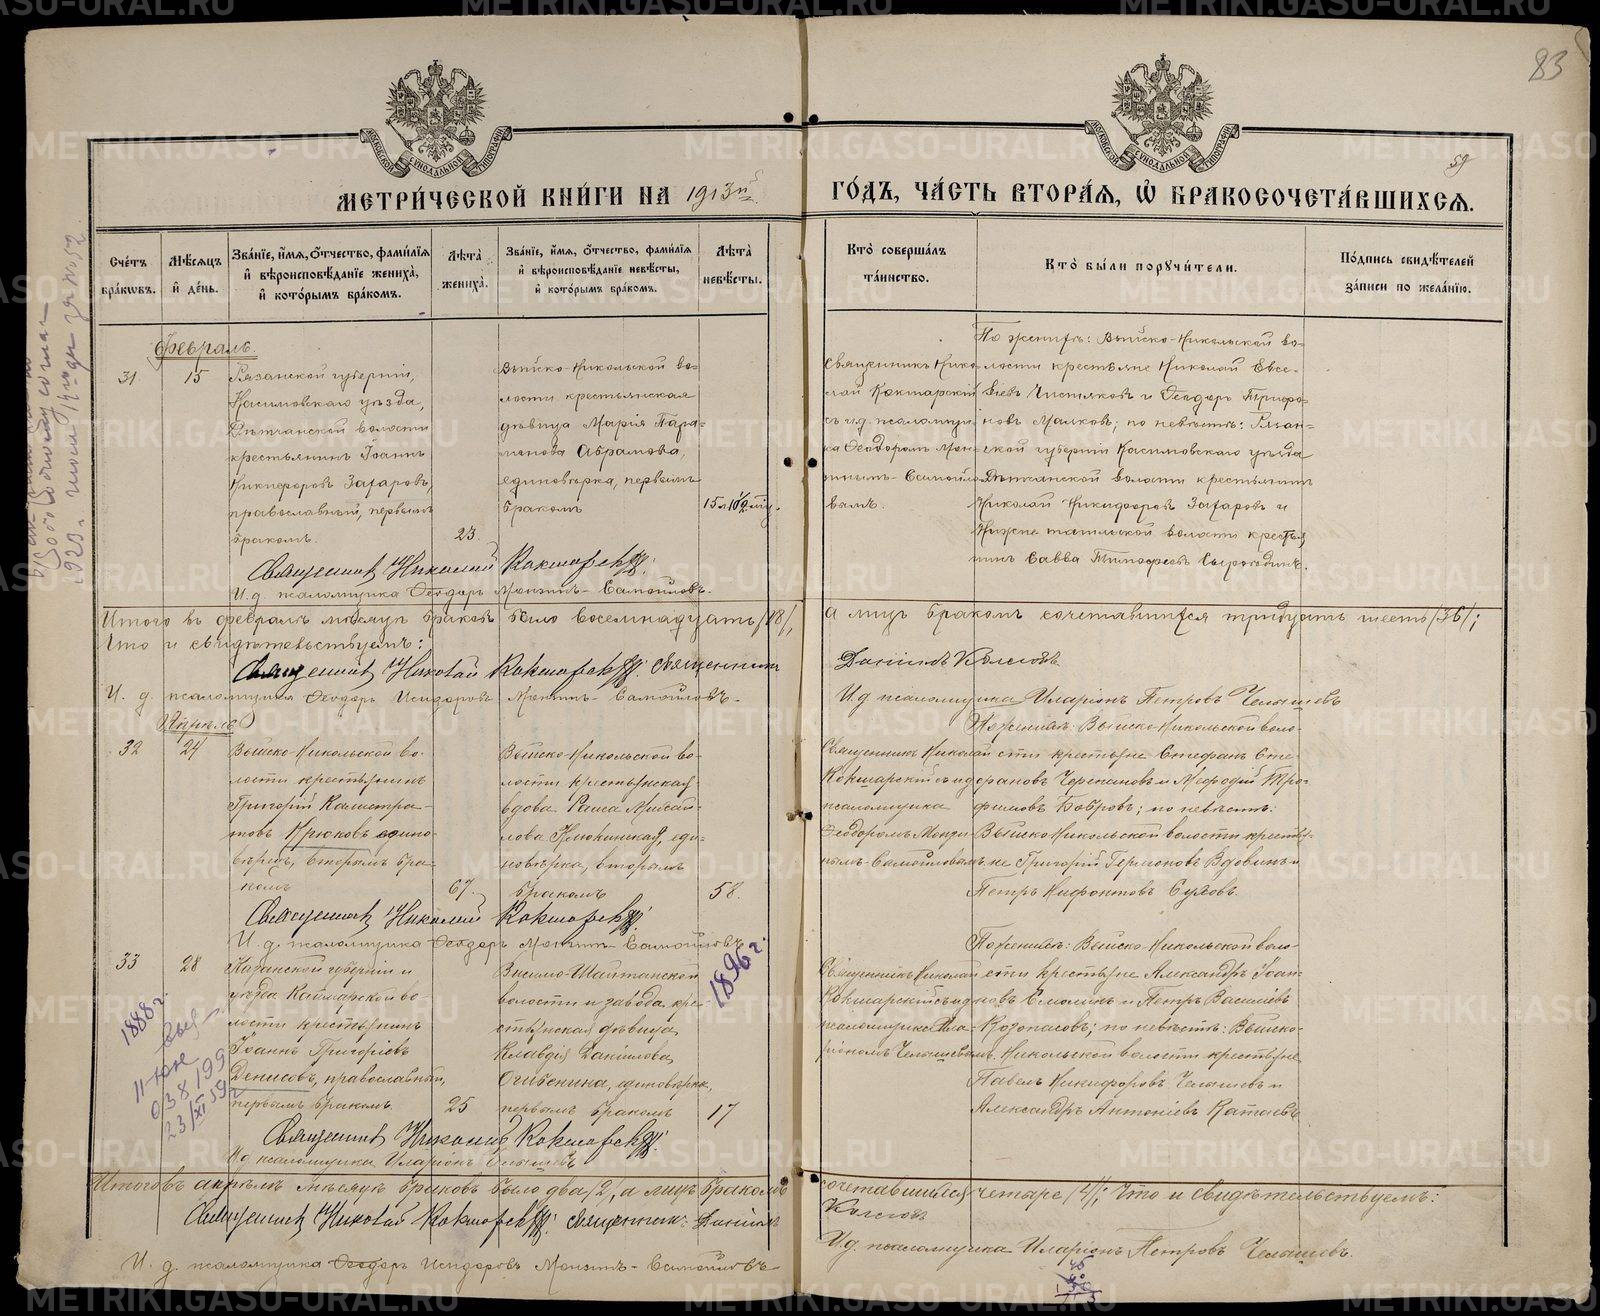 83
59
МЕТРИ́ЧЕСКОЙ КНИ́ГИ НА 1913й
ГО́ДЪ, ЧА́СТЬ ВТОРА́Я, Ѿ БРАКОСОЧЕТА́ВШИХСЯ.
Сче́тъ бра́кѡвъ.
Мѣ́сяцъ и҆ де́нь.
Зва́нїе, и҆́мя, ѻ҆́тчество, фами́лїя и҆ вѣроисповѣ́данїе жениха̀, и҆ кото́рымъ бра́комъ.
Лѣ́та жениха̀.
Зва́нїе, и҆́мя, ѻ҆́тчество, фами́лїя и҆ вѣроисповѣ́данїе невѣ́сты, и҆ кото́рымъ бра́комъ.
Лѣ́та невѣ́сты.
Кто̀ соверша́лъ та́инство.
Кто̀ бы́ли порꙋчи́тели.
По́дпись свидѣ́телей за́писи по жела́нїю.
Февраль.
31
15
Рязанской губернии,
Касимовскаго уѣзда,
Дѣтчанской волости
крестьянинъ Іоаннъ
Никифоровъ Захаровъ,
православный, первымъ
бракомъ.
23.
Выйско-Никольской во-
лости крестьянская
дѣвица Марія Пара-
монова Абрамова,
единовѣрка, первымъ
бракомъ
15 л. 10½ мѣс.
Священникъ Нико-
лай Кокшарскій
съ и.д. псаломщи-
ка Ѳеодоромъ Мон-
зинымъ-Самойло-
вымъ.
По женихѣ: Выйско-Никольской во-
лости крестьяне Николай Евсе-
віевъ Чистяковъ и Ѳеодоръ Трифо-
новъ Малковъ; по невѣстѣ: Рязан-
ской губерніи Касимовскаго уѣзда
Дѣтчанской волости крестьянинъ
Николай Никифоровъ Захаровъ и
Нижне тагильской волости крестья-
нинъ Савва Тимофеевъ Сыроѣдинъ.
Священникъ Николай Кокшарскій.
И.д. псаломщика Ѳеодоръ Монзинъ-Самойловъ.
Итого въ февралѣ мѣсяцѣ браковъ было восемнадцать /18/, а лицъ бракомъ сочетавшихся тридцать шесть /36/;
Что и свидѣтельствуемъ:
Священникъ Николай Кокшарскій. Священникъ Даніилъ Колеговъ
И. д. псаломщика Ѳеодоръ Исидоровъ Монзинъ-Самойловъ.
И.д. псаломщика Иларіонъ Петровъ Челышевъ
Апрѣль
32
24
Выйско-Никольской во-
лости крестьянинъ
Григорій Калистра-
товъ Крюковъ едино-
вѣрецъ, вторымъ бра-
комъ
67.
Выйско-Никольской во-
лости крестьянская
вдова Раиса Мисаи-
лова Клюкинская, еди-
новѣрка, вторымъ
бракомъ
58.
Священникъ Николай
Кокшарскій съ и.д.
псаломщика
Ѳеодоромъ Монзи-
нымъ-Самойловымъ.
По женихѣ: Выйско-Никольской воло-
сти крестьяне Стефанъ Сте-
фановъ Черепановъ и Меѳодій Тро-
фимовъ Бобровъ; по невѣстѣ:
Выйско Никольской волости крестья-
не Григорій Гермоновъ Вдовинъ и
Петръ Нифонтовъ Суховъ.
Священникъ Николай Кокшарскій.
И. д. псаломщика Ѳеодоръ Монзинъ-Самойловъ
33
28
Казанской губерніи и
уѣзда Каймарской во-
лости крестьянинъ
Іоаннъ Григоріевъ
Денисовъ, православный,
первымъ бракомъ.
25
Висимо-Шайтанской
волости и завода кре-
стьянская дѣвица
Клавдія Даніилова
Огибенина, единовѣрка,
первымъ бракомъ
17
1896 г.
1888 г.
23/XI 59 г.
Священникъ Николай
Кокшарскій съ и.д.
псаломщика Ила-
ріономъ Челышевымъ.
По женихѣ: Выйско-Никольской воло-
сти крестьяне Александръ Іоан-
новъ Ермолинъ и Петръ Василіевъ
Козопасовъ; по невѣстѣ: Выйско-
Никольской волости крестьяне
Павелъ Никифоровъ Челышевъ и
Александръ Антоніевъ Катаевъ
Священникъ Николай Кокшарскій.
И.д. псаломщика Иларіонъ Челышевъ
Итого въ апрѣлѣ мѣсяцѣ браковъ было два /2/, а лицъ бракомъ сочетавшихся четыре /4/; Что и свидѣтельствуемъ:
Священникъ Николай Кокшарскій. Священникъ Даніилъ Колеговъ
И. д. псаломщика Ѳеодоръ Исидоровъ Монзинъ-Самойловъ
И.д. псаломщика Иларіонъ Петровъ Челышевъ.
METRIKI.GASO-URAL.RU